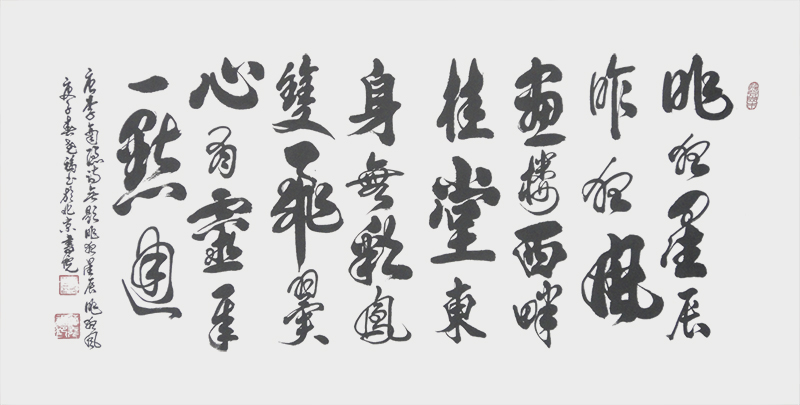 昨夜星辰
昨夜風
畫樓西畔
桂堂東
身無彩鳳
雙飛翼
心有靈犀
一點通
唐李商隱詩無題昨夜星辰昨夜風
庚子春
書於北京